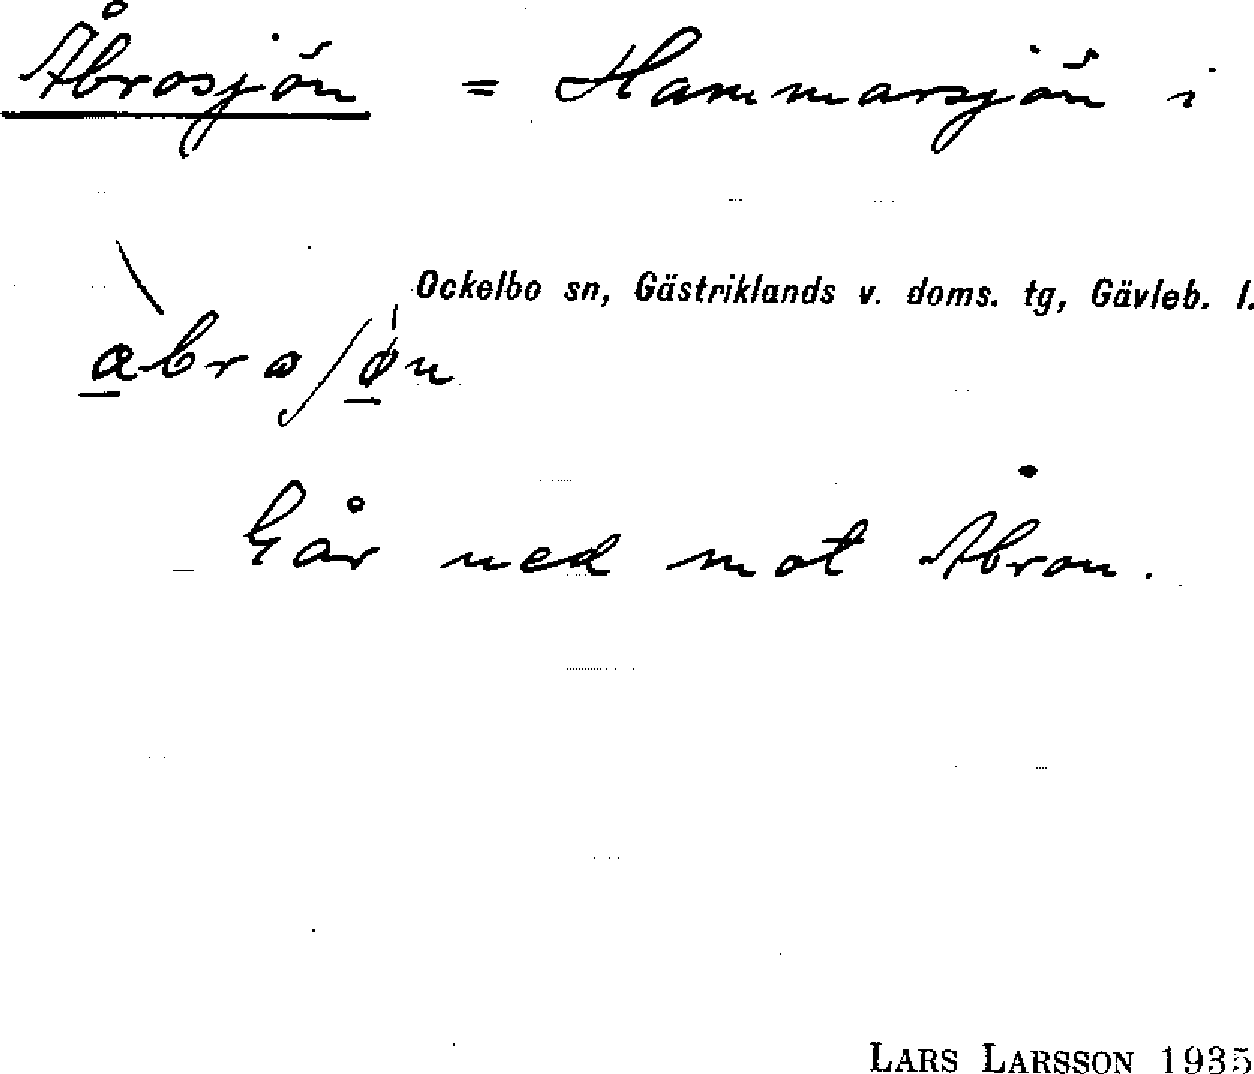 Åbrosjön = Hammarsjön i
Ockelbo sn, Gästriklands v. doms. tg, Gävleb. l.
Går ned mot Åbron.
LARS LARSSON 1935